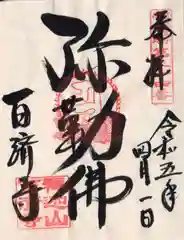 奉拝
令和五年
四月一日
弥勒佛
百済寺